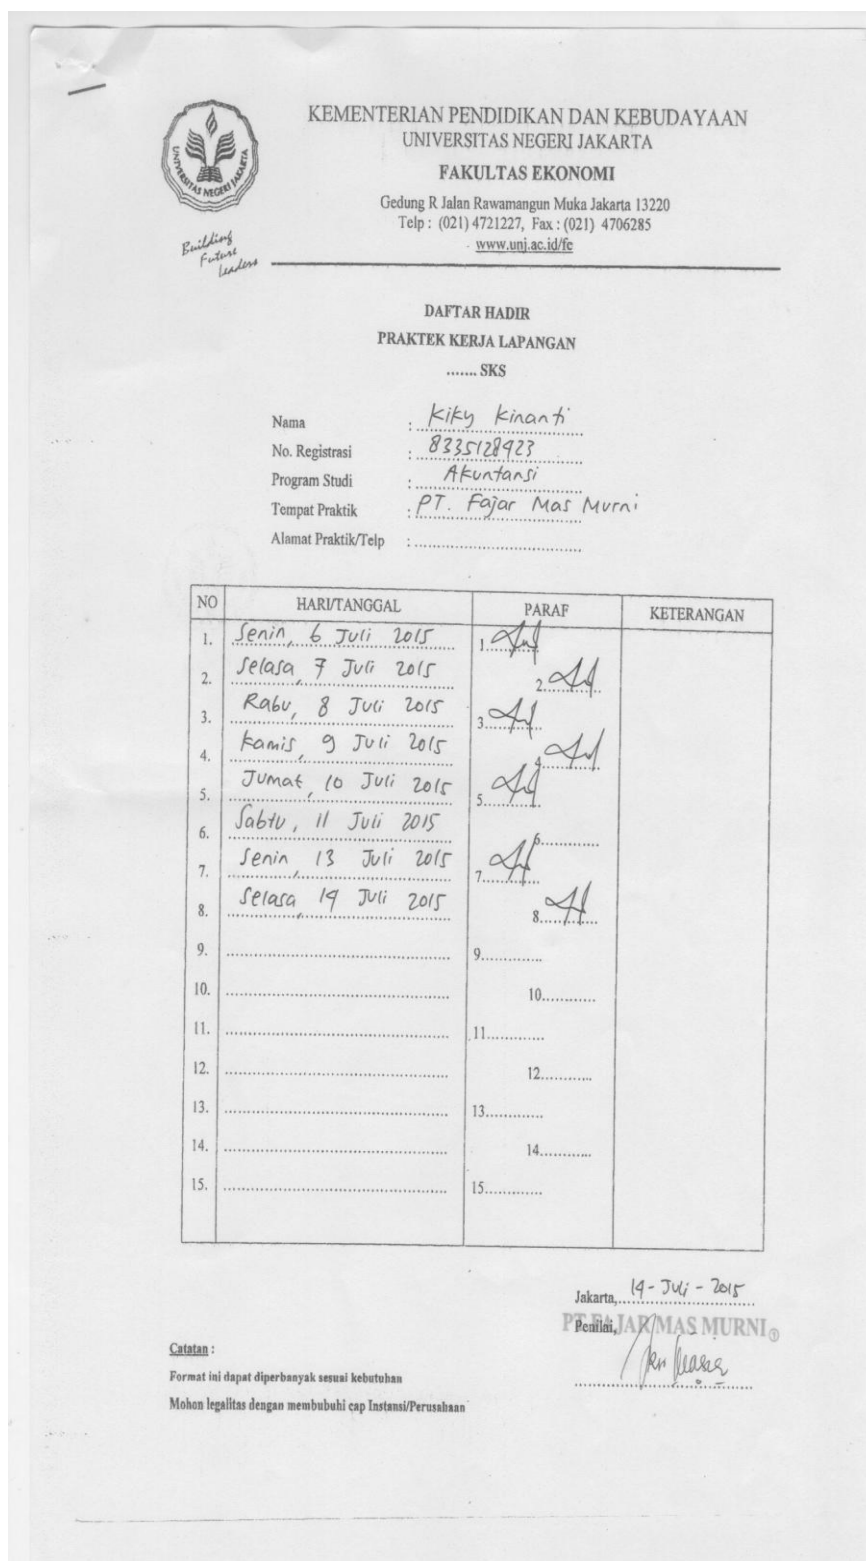 KEMENTERIAN PENDIDIKAN DAN KEBUDAYAAN
UNIVERSITAS NEGERI JAKARTA
FAKULTAS EKONOMI
Gedung R Jalan Rawamangun Muka Jakarta 13220
Telp : (021) 4721227, Fax : (021) 4706285
www.unj.ac.id/fe
UNIVERSITAS NEGERI JAKARTA
Building
Future
Leaders
DAFTAR HADIR
PRAKTEK KERJA LAPANGAN
....... SKS
Nama : Kiky Kinanti
No. Registrasi : 8335128923
Program Studi : Akuntansi
Tempat Praktik : PT. Fajar Mas Murni
Alamat Praktik/Telp :
NO HARI/TANGGAL PARAF KETERANGAN
1. Senin, 6 Juli 2015 1.
2. Selasa, 7 Juli 2015 2.
3. Rabu, 8 Juli 2015 3.
4. Kamis, 9 Juli 2015 4.
5. Jumat, 10 Juli 2015 5.
6. Sabtu, 11 Juli 2015 6.
7. Senin, 13 Juli 2015 7.
8. Selasa, 14 Juli 2015 8.
9. 9.
10. 10.
11. 11.
12. 12.
13. 13.
14. 14.
15. 15.
Jakarta, 14 - Juli - 2015
Penilai,
PT FAJAR MAS MURNI
Catatan :
Format ini dapat diperbanyak sesuai kebutuhan
Mohon legalitas dengan membubuhi cap Instansi/Perusahaan